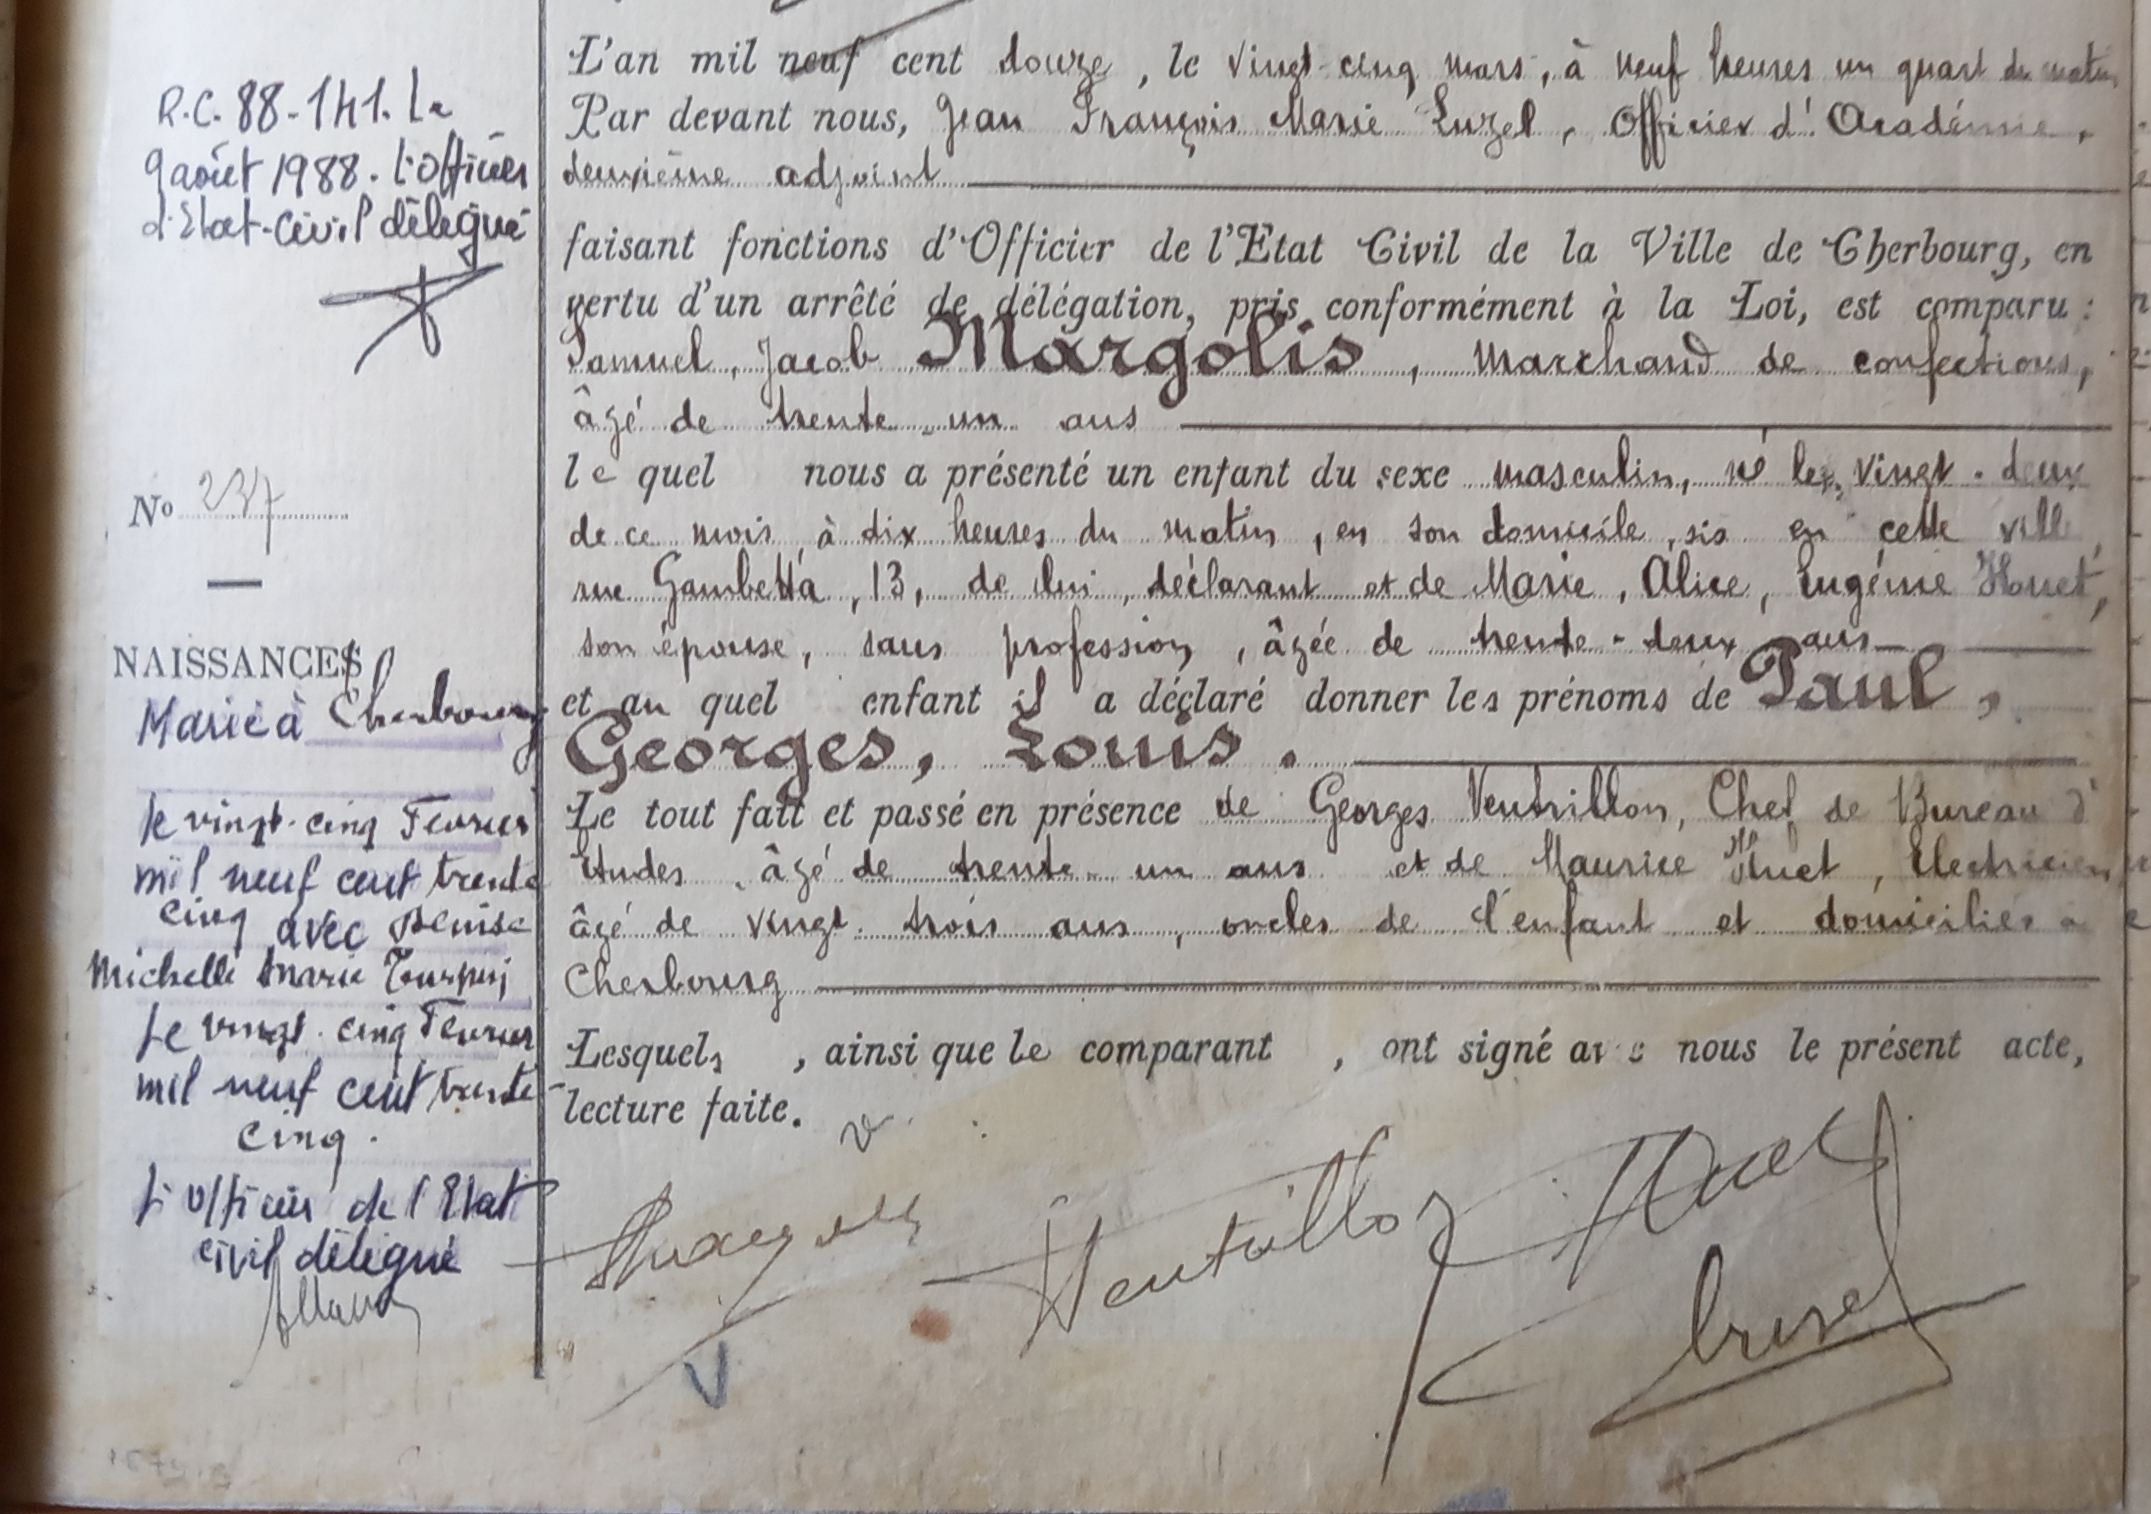 R.C. 88-141. Le
9 août 1988. L'officier
d'Etat-Civil délégué
N° 237
NAISSANCES
Marié à Cherbourg
le vingt-cinq Février
mil neuf cent trente
cinq avec Denise
Michelle Marie Tourpin
Le vingt-cinq Février
mil neuf cent trente
cinq.
L'officier de l'Etat
civil délégué
L'an mil neuf cent douze, le vingt-cinq mars, à neuf heures un quart du matin
Par devant nous, Jean François Marie Luzel, Officier d'Académie,
deuxième adjoint
faisant fonctions d'Officier de l'Etat Civil de la Ville de Cherbourg, en
vertu d'un arrêté de délégation, pris conformément à la Loi, est comparu :
Samuel, Jacob Margolis, Marchand de confections,
âgé de trente-un ans
lequel nous a présenté un enfant du sexe masculin, né le vingt-deux
de ce mois à dix heures du matin, en son domicile, sis en cette ville,
rue Gambetta, 13, de lui, déclarant et de Marie, Alice, Eugénie Huet,
son épouse, sans profession, âgée de trente-deux ans
et auquel enfant il a déclaré donner les prénoms de Paul,
Georges, Louis.
Le tout fait et passé en présence de Georges Ventrillon, Chef de Bureau d'
Etudes, âgé de trente-un ans et de Maurice Huet, Electricien
âgé de vingt-trois ans, oncles de l'enfant et domiciliés à
Cherbourg
Lesquels, ainsi que le comparant, ont signé avec nous le présent acte,
lecture faite.
Ventrillon Huet
Luzel